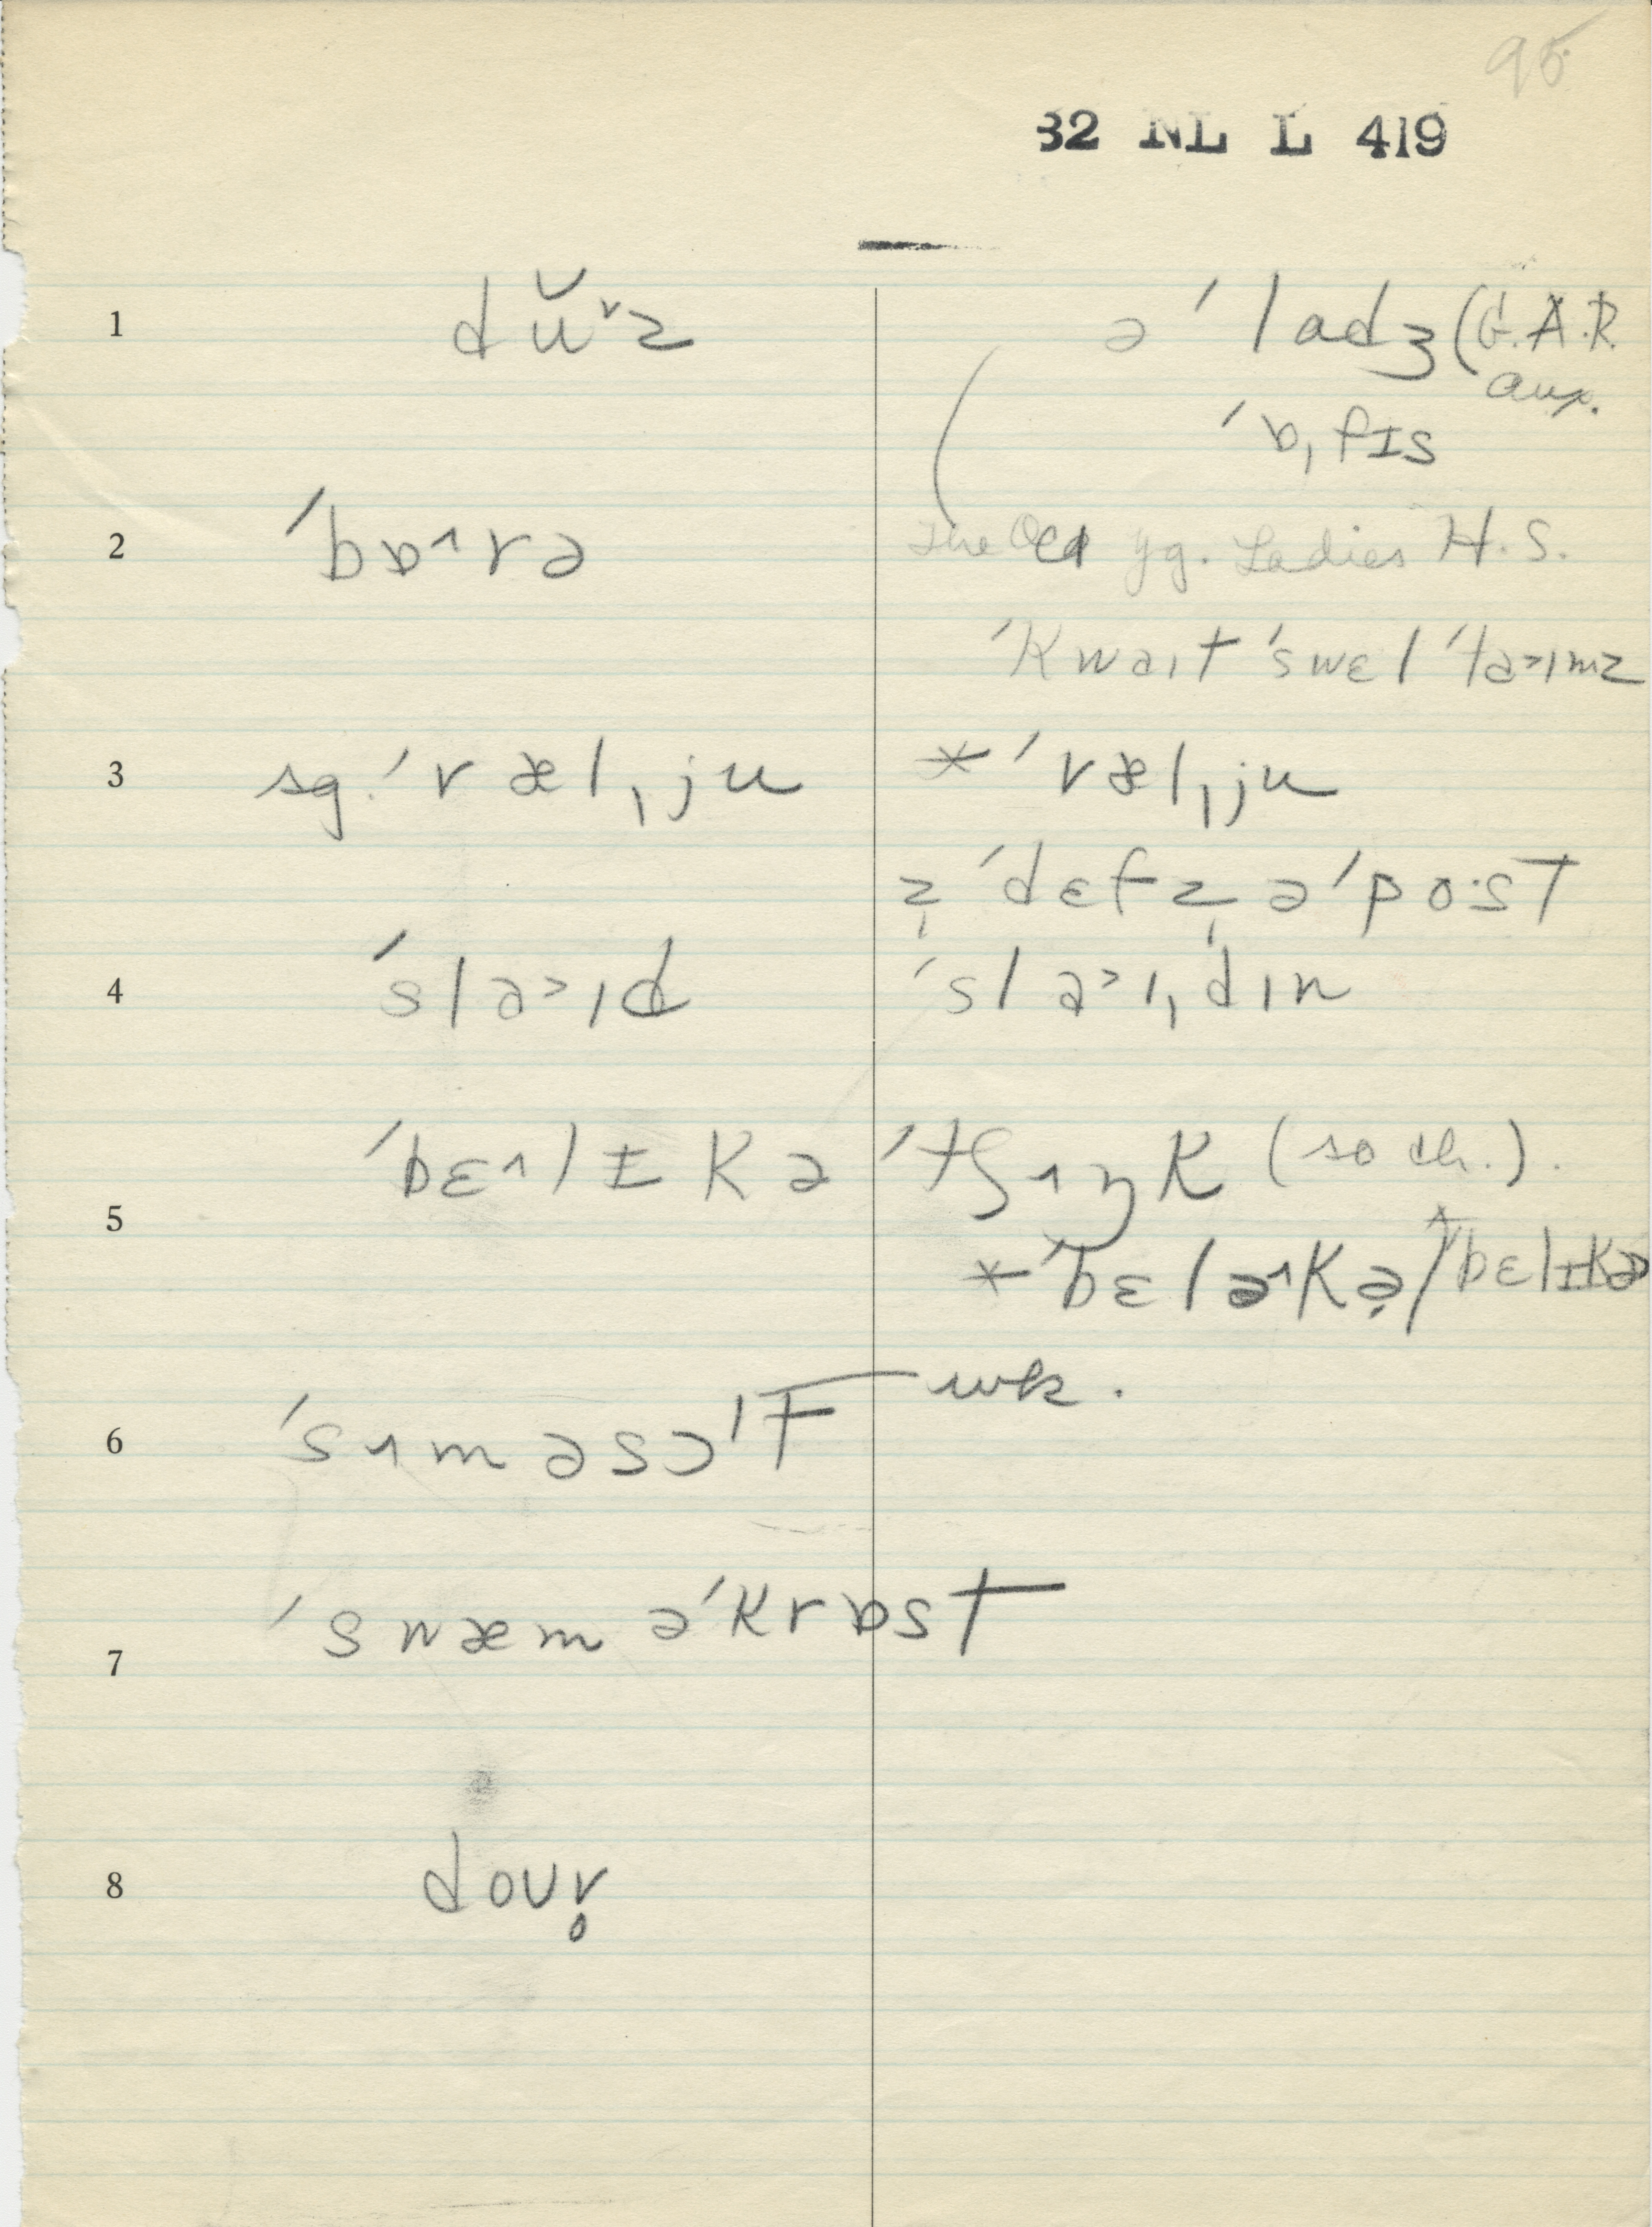 95
32 NL L 419
1 dŭ˅z ə ˈladʒ (G.A.R.
aux.
ˈɒˌfɪs
2 ˈbɒ˄rə The Old yg. Ladies H.S.
ˈkwaɪt ˈswɛl ˈta>ɪmz
3 sg. ˈræl,ju * ˈræl,ju
z̩ ˈdɛf z̩ əˈpo·sT
4 ˈsla>ɪd ˈsla>ɪ,dɪn
5 ˈbɛ˄lɪkə ˈtʃ˄ɪŋk (so ch.).
* ˈbɛlə˄kə̣/ˈbɛlɪkə
6 ˈsɪ˄məsɔˈT wk.
7 ˈswæm əˈkrɒst
8 doʊr̥